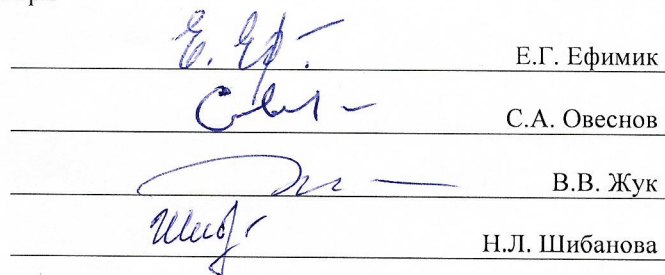 Е.Г. Ефимик
С.А. Овеснов
В.В. Жук
Н.Л. Шибанова